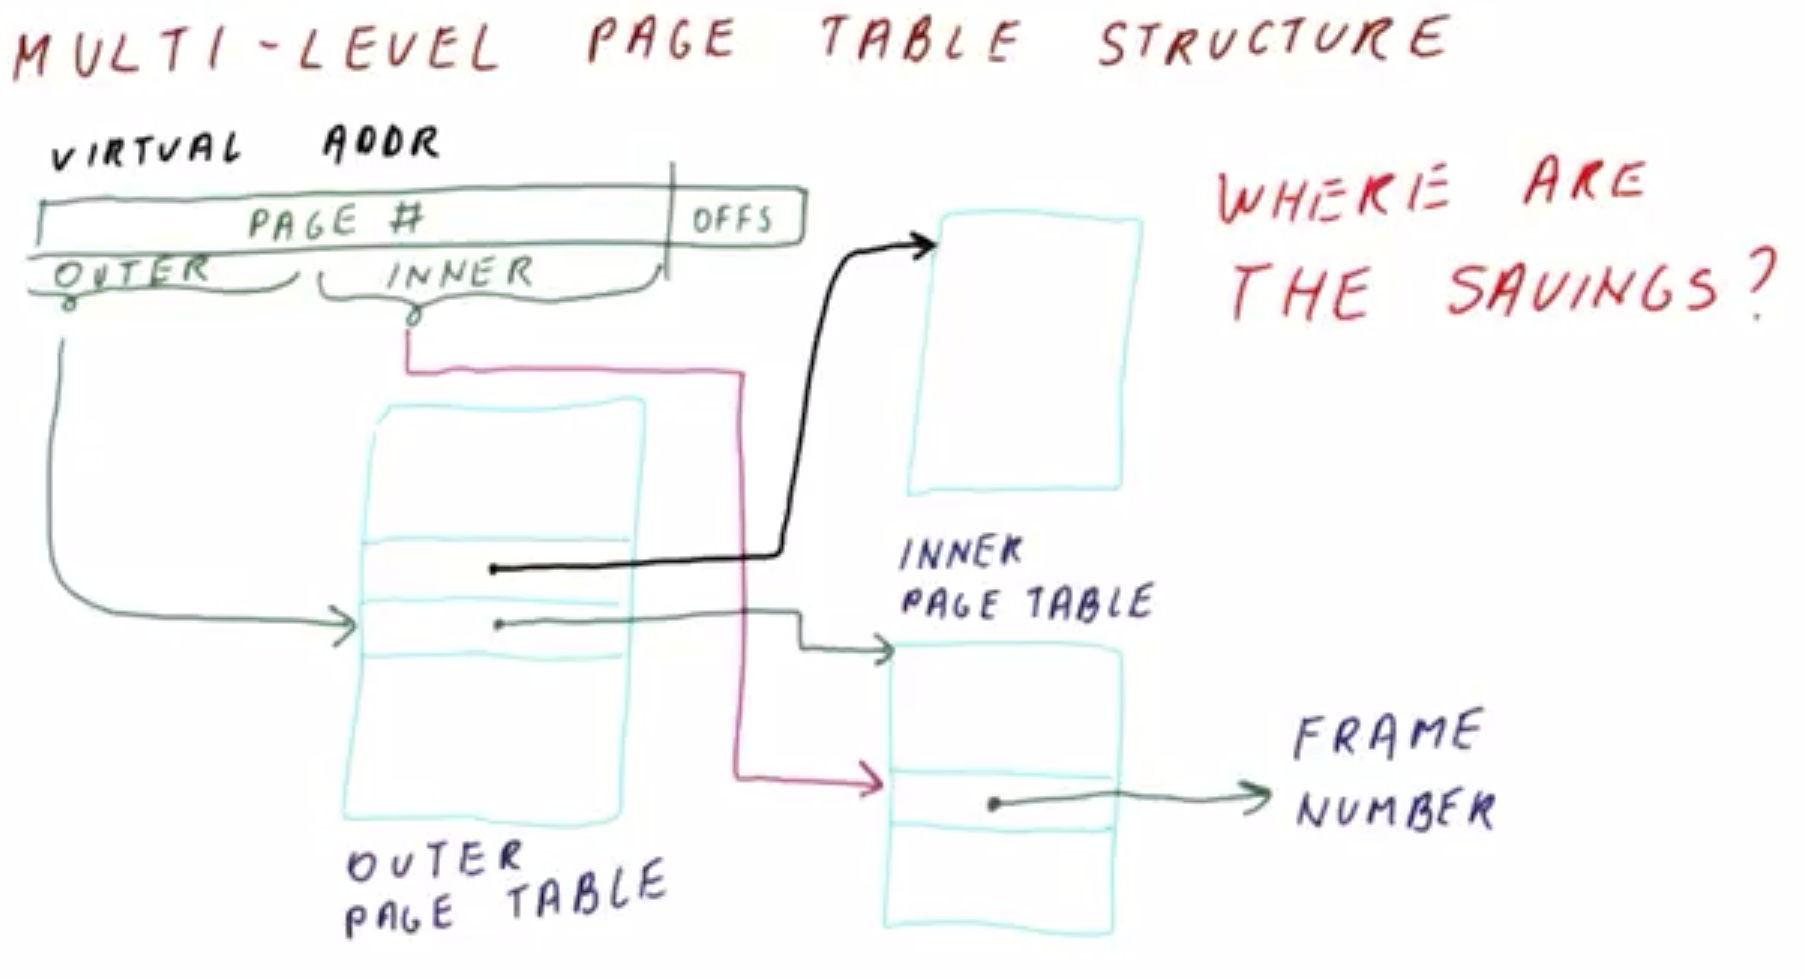 MULTI-LEVEL PAGE TABLE STRUCTURE
VIRTUAL ADDR
PAGE # OFFS
OUTER INNER
WHERE ARE
THE SAVINGS?
INNER
PAGE TABLE
FRAME
NUMBER
OUTER
PAGE TABLE